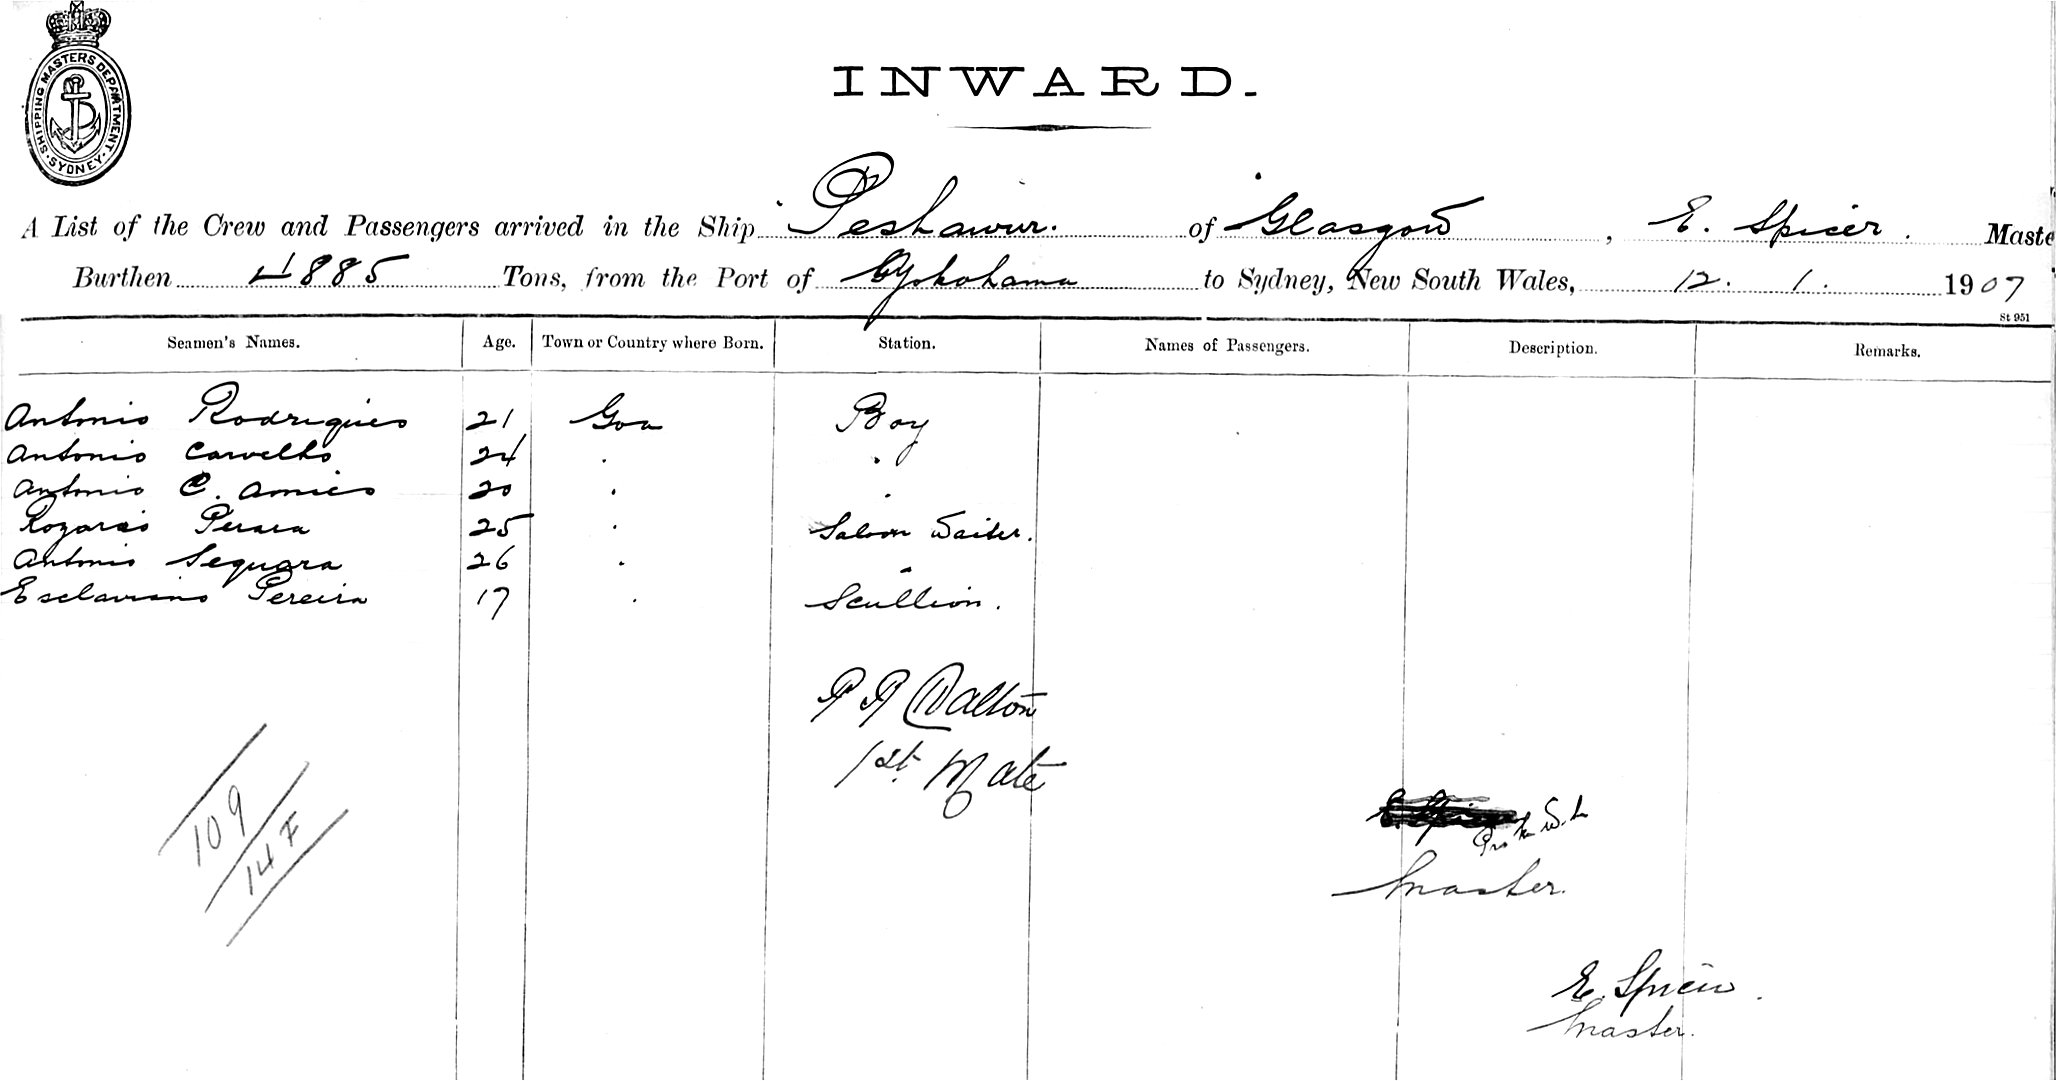 SHIPPING MASTERS DEPARTMENT
SYDNEY
INWARD.
A List of the Crew and Passengers arrived in the Ship Peshawur. of Glasgow, E. Spicer. Maste
Burthen 4885 Tons, from the Port of Yokohama to Sydney, New South Wales, 12. 1. 1907
St 951
Seamen's Names. Age. Town or Country where Born. Station. Names of Passengers. Description. Remarks.
Antonio Rodrigues 21 Goa Boy
Antonio Carvelho 24 " "
Antonio C. Amies 20 " "
Rozario Perara 25 " Saloon Waiter.
Antonio Sequara 26 " "
Esclaviano Pereira 17 " Scullion.
P P Dalton
1st Mate
109
14 F
Master.
E. Spicer.
Master.